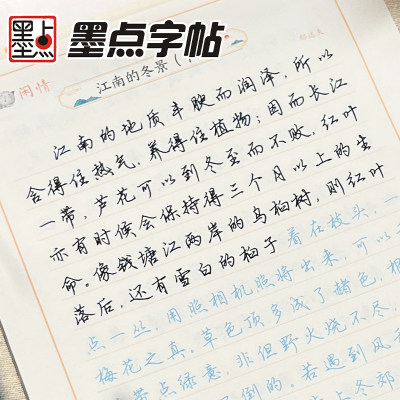 墨点 墨点字帖
闲情
江南的冬景(
江南的地质丰腴而润泽，所以
含得住热气，养得住植物；因而长江
一带，芦花可以到冬至而不败，红叶
亦有时候会保持得三个月以上的生
命。像钱塘江两岸的乌桕树，则红叶
落后，还有雪白的桕子着在枝头，一
点一丛，用照相机照将出来，可以
梅花之真。草色顶多成了赭色，根
带点绿意，非但野火烧不尽，
倒的。若遇到风
上冬郊